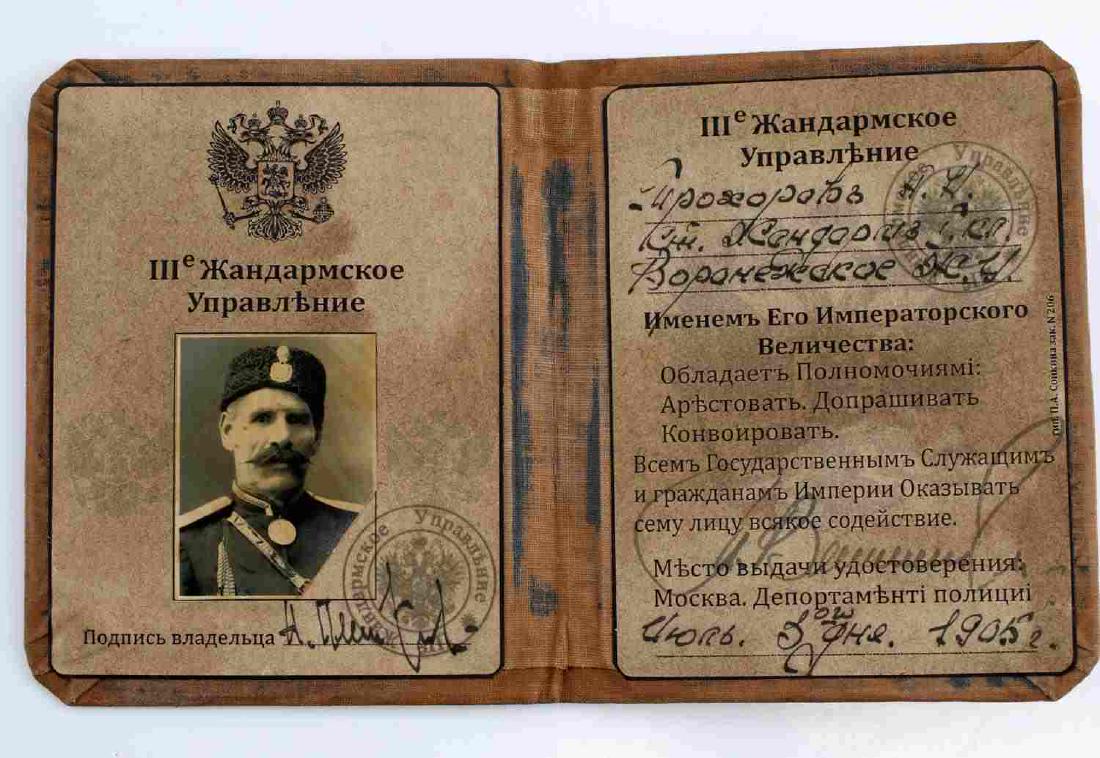 IIIе Жандармское
Управлѣние
Подпись владельца
Жандармское Управлѣние
IIIе Жандармское
Управлѣние
Прохоровъ
Ст. Жандармъ
Воронежское Ж.У.
Именемъ Его Императорского
Величества:
Обладаетъ Полномочиямі:
Арѣстовать. Допрашивать
Конвоировать.
Всемъ Государственнымъ Служащимъ
и гражданамъ Империи Оказывать
сему лицу всякое содействие.
Мѣсто выдачи удостоверения:
Москва. Депортамѣнті полициі
Июль. 3ой дня. 1905 г.
Управлѣние
Тип. П.А. Сойкина зак. N 206